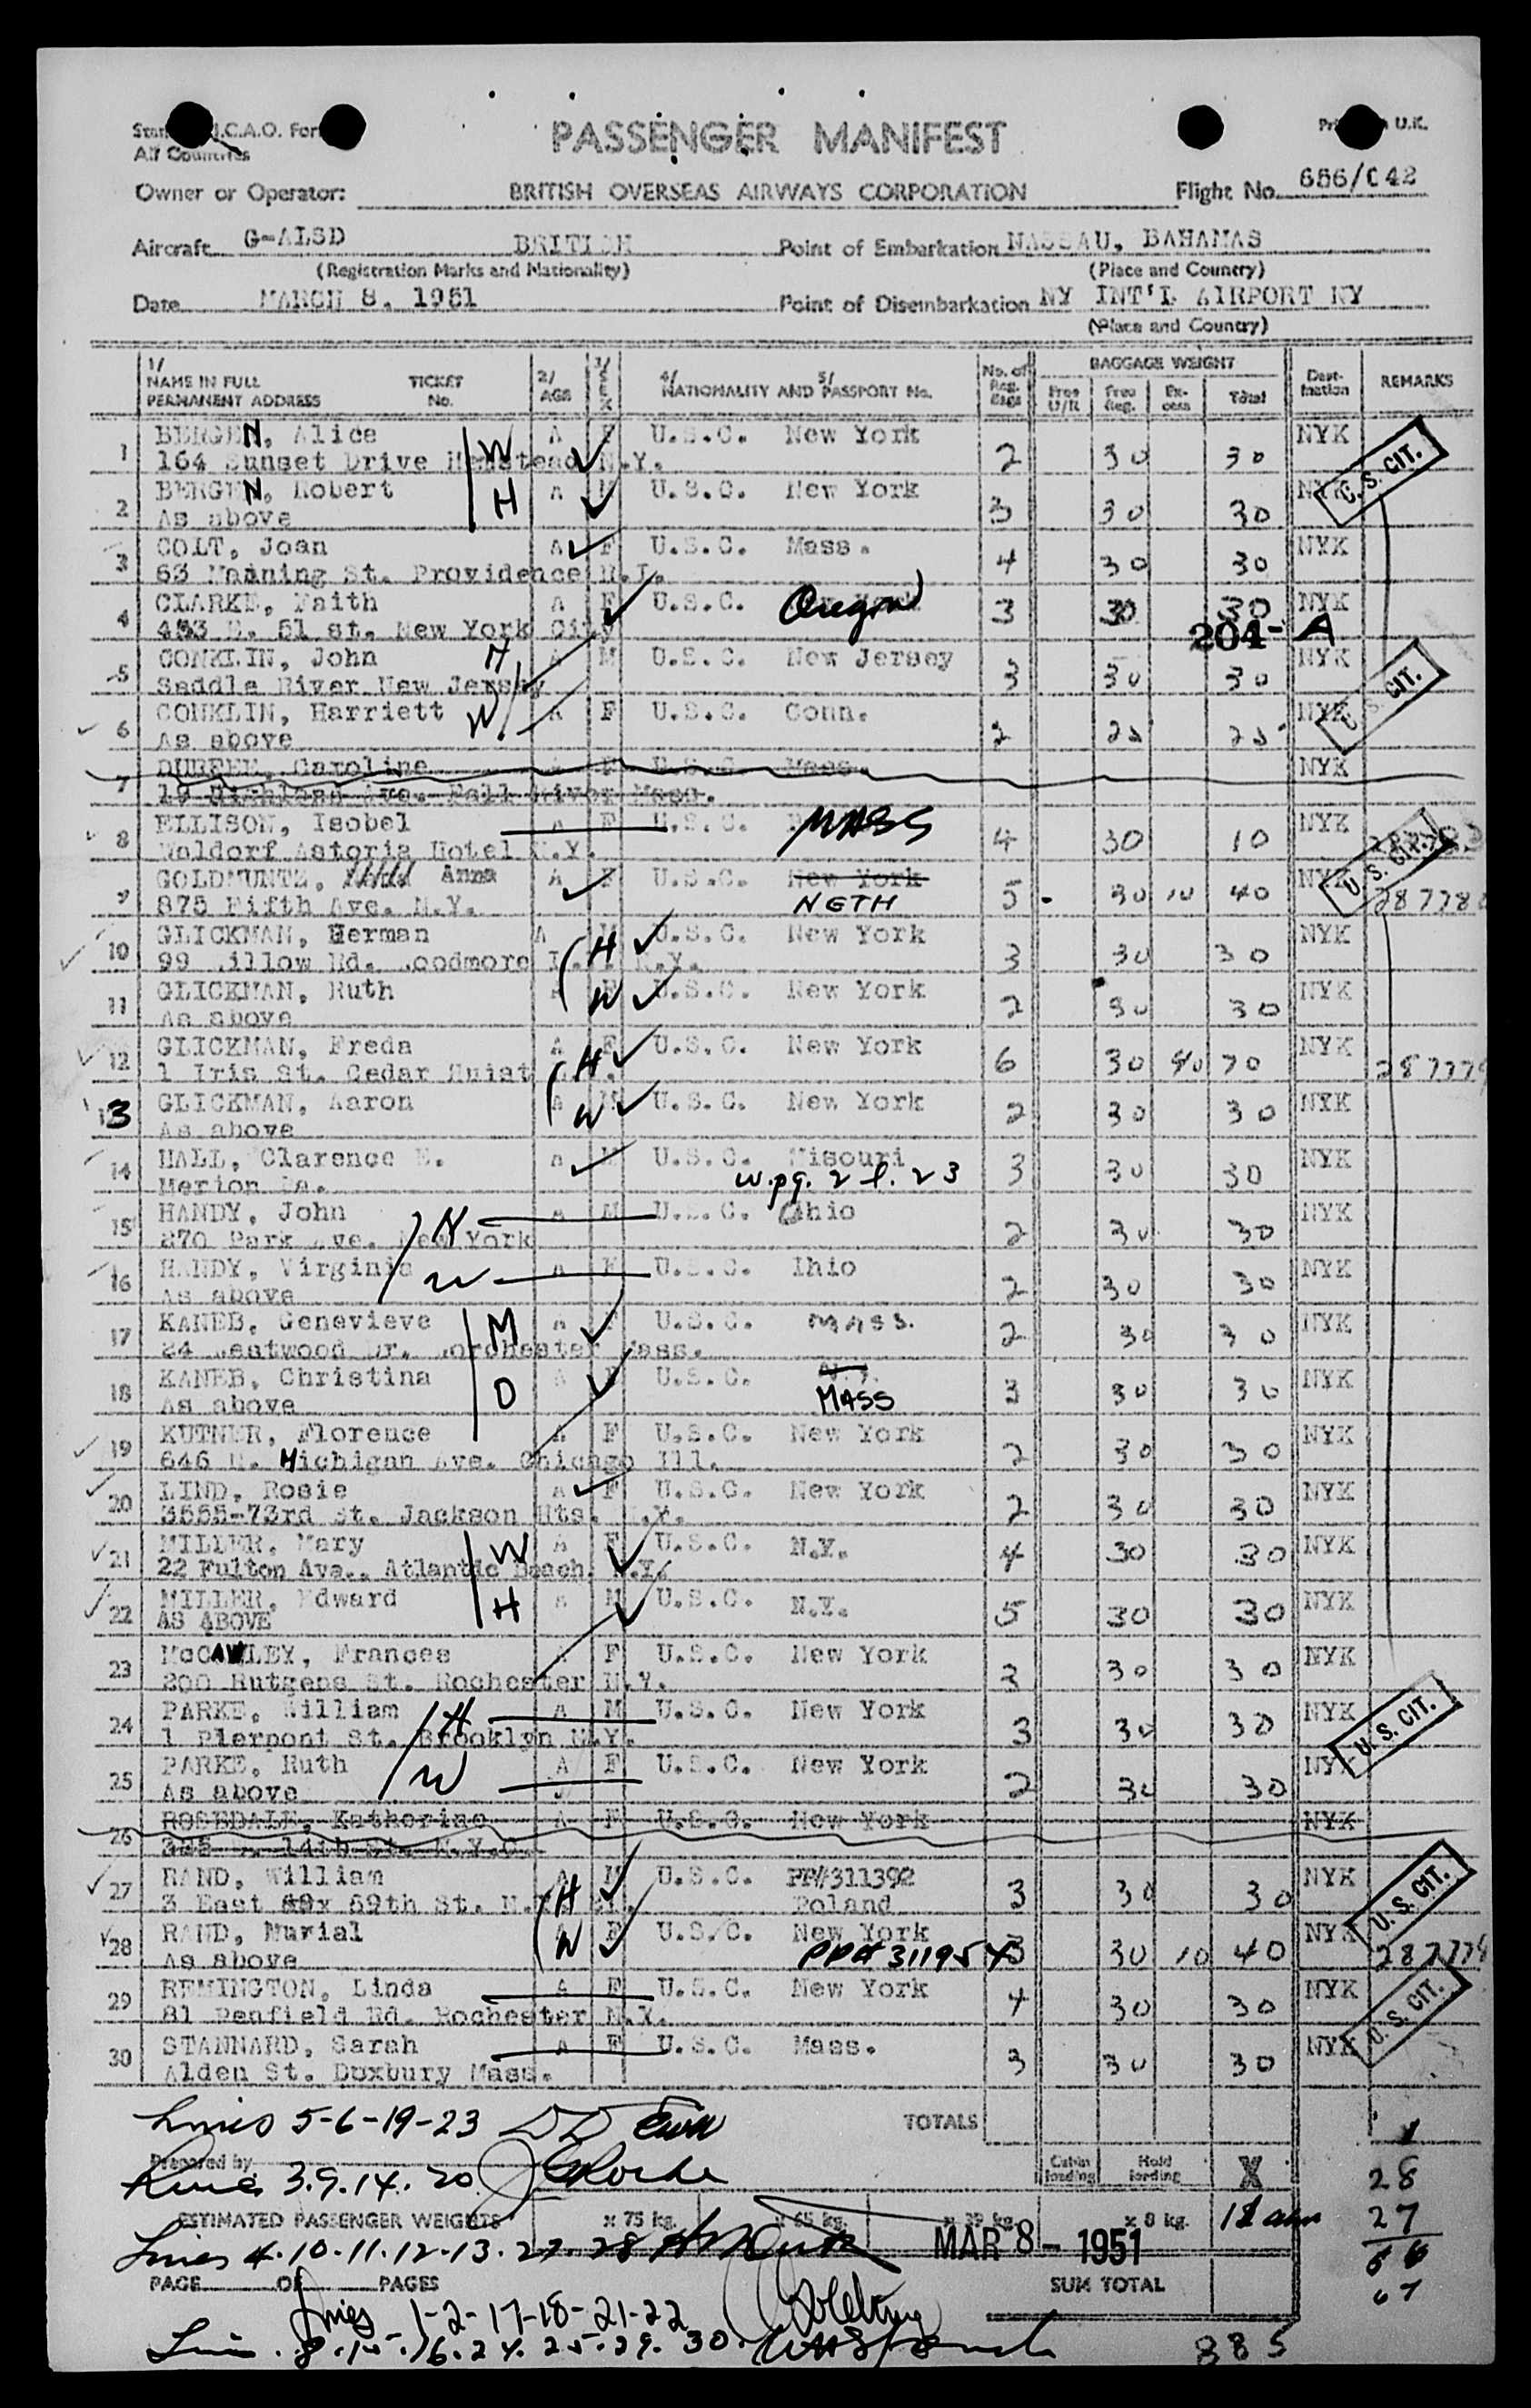 PASSENGER MANIFEST
All Countries
Owner or Operator: BRITISH OVERSEAS AIRWAYS CORPORATION Flight No. 656/042
Aircraft G-ALSD BRITISH Point of Embarkation NASSAU, BAHAMAS
(Registration Marks and Nationality) (Place and Country)
Date MARCH 8, 1951 Point of Disembarkation NY INT'L AIRPORT NY
(Place and Country)
1/ NAME IN FULL PERMANENT ADDRESS TICKET No. 2/ AGE 3/ SEX 4/ NATIONALITY AND 5/ PASSPORT No. No. of Reg. Bags BAGGAGE WEIGHT Free U/R Free Reg. Ex-cess Total Dest-ination REMARKS
1 BERGEN, Alice W A F U.S.C. New York 2 30 30 NYK
164 Sunset Drive Hempstead N.Y.
U.S. CIT.
2 BERGEN, Robert H A M U.S.C. New York 3 30 30 NYK
As above
3 COLT, Joan A F U.S.C. Mass. 4 30 30 NYK
63 Manning St. Providence R.I.
4 CLARKE, Faith A F U.S.C. Oregon 3 30 30 NYK
453 E. 51 st. New York City
204- A
5 CONKLIN, John H A M U.S.C. New Jersey 3 30 30 NYK
Saddle River New Jersey
U.S. CIT.
6 CONKLIN, Harriett W A F U.S.C. Conn. 2 25 25 NYK
As above
7 DURFEE, Caroline A F U.S.C. Mass. NYK
19 Highland Ave. Fall River Mass.
8 ELLISON, Isobel A F U.S.C. MASS 4 30 10 NYK
Waldorf Astoria Hotel N.Y.
U.S. CIT.
9 GOLDMUNTZ, Anna A F U.S.C. New York 5 30 10 40 NYK
875 Fifth Ave. N.Y. NETH
10 GLICKMAN, Herman H A M U.S.C. New York 3 30 30 NYK
99 Willow Rd. Woodmore L.I. N.Y.
11 GLICKMAN, Ruth W A F U.S.C. New York 2 30 30 NYK
As above
12 GLICKMAN, Freda H A F U.S.C. New York 6 30 40 70 NYK
1 Iris St. Cedar Huist
13 GLICKMAN, Aaron W A M U.S.C. New York 2 30 30 NYK
As above
14 HALL, Clarence E. A M U.S.C. Misouri 3 30 30 NYK
Merion Pa. w.pg. 2 l. 23
15 HANDY, John H A M U.S.C. Ohio 2 30 30 NYK
270 Park Ave. New York
16 HANDY, Virginia W A F U.S.C. Ihio 2 30 30 NYK
As above
17 KANEB, Genevieve M A F U.S.C. MASS. 2 30 30 NYK
24 Westwood Dr. Dorchester Mass.
18 KANEB, Christina D A F U.S.C. N.Y. 3 30 30 NYK
As above MASS
19 KUTNER, Florence A F U.S.C. New York 2 30 30 NYK
646 N. Michigan Ave. Chicago Ill.
20 LIND, Rosie A F U.S.C. New York 2 30 30 NYK
3555-73rd St. Jackson Hts. N.Y.
21 MILLER, Mary W A F U.S.C. N.Y. 4 30 30 NYK
22 Fulton Ave.. Atlantic Beach. N.Y.
22 MILLER, Edward H A M U.S.C. N.Y. 5 30 30 NYK
AS ABOVE
23 McCAWLEY, Frances A F U.S.C. New York 3 30 30 NYK
200 Rutgens St. Rochester N.Y.
24 PARKE, William H A M U.S.C. New York 3 30 30 NYK
1 Pierpont St. Brooklyn N.Y.
U.S. CIT.
25 PARKE, Ruth W A F U.S.C. New York 2 30 30 NYK
As above
26 ROSEDALE, Katherine A F U.S.C. New York NYK
14th St. N.Y.C.
27 RAND, William H A M U.S.C. PP#311392 3 30 30 NYK
3 East 59th St. N.Y. Poland
U.S. CIT.
28 RAND, Murial W A F U.S.C. New York 3 30 10 40 NYK
As above PP# 311954
29 REMINGTON, Linda A F U.S.C. New York 4 30 30 NYK
81 Penfield Rd. Rochester N.Y.
U.S. CIT.
30 STANNARD, Sarah A F U.S.C. Mass. 3 30 30 NYK
Alden St. Duxbury Mass.
Lines 5-6-19-23 TOTALS
Prepared by Cabin loading Hold loading X
Lines 3.9.14.20
28
27
ESTIMATED PASSENGER WEIGHTS x 75 kg. x 65 kg. x 39 kg. x 8 kg.
Lines 4.10.11.12.13.27.28 MAR 8 - 1951
PAGE OF PAGES SUM TOTAL
Lines 1-2-17-18-21-22
Lin. 8.15.16.24.25.29.30. 885